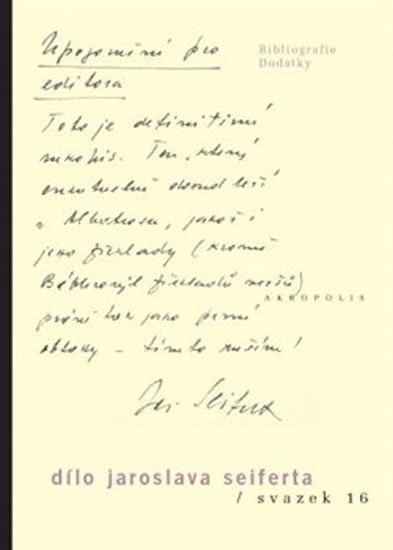 Upozornění pro
editora
Bibliografie
Dodatky
Toto je definitivní
rukopis. Ten, který
eventuelně dosud leží
v Albatrosu, jakož i
jeho překlady (kromě
překladů veršů)
AKROPOLIS
právě tak jako první
obtahy – tímto ruším!
Jar. Seifert
dílo jaroslava seiferta
/ svazek 16